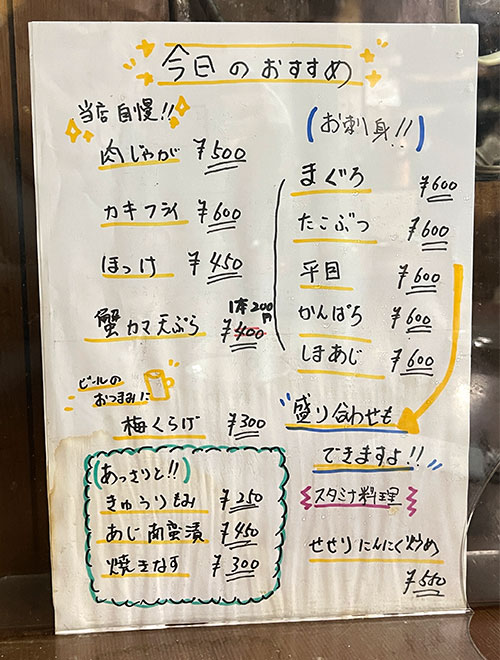 今日のおすすめ
当店自慢!!
肉じゃが ¥500
カキフライ ¥600
ほっけ ¥450
1本200円
蟹カマ天ぷら ¥400
ビールのおつまみに
梅くらげ ¥300
(あっさりと!!)
きゅうりもみ ¥250
あじ南蛮漬 ¥450
焼きなす ¥300
(お刺身!!)
まぐろ ¥600
たこぶつ ¥600
平目 ¥600
かんぱち ¥600
しまあじ ¥600
"盛り合わせも
できますよ!!"
スタミナ料理
せせりにんにく炒め
¥550